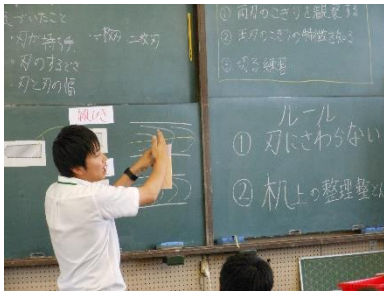 気づいたこと
・刃が
・刃のするどさ
・刃と刃の幅
① 両刃のこぎりを観察する
② 両刃のこぎりの特徴を知る
③ 切る練習
ルール
① 刃にさわらない
② 机上の整理整とん